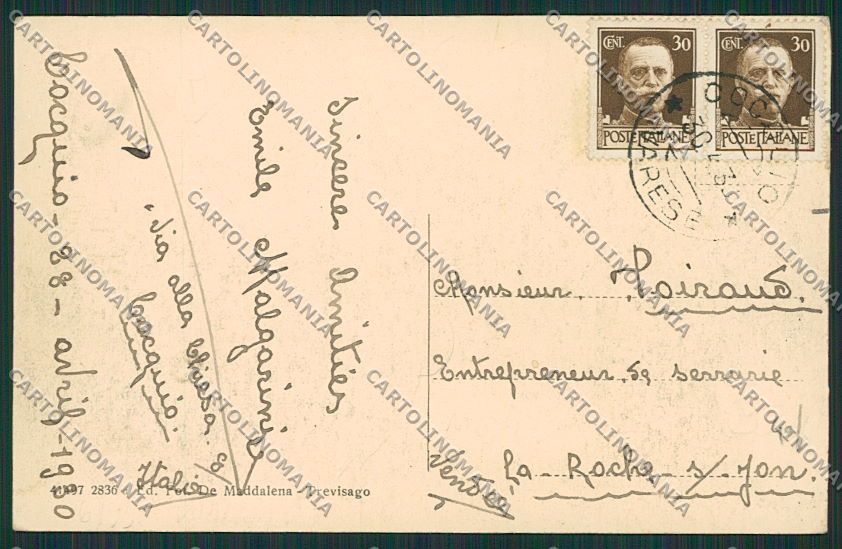 Cocquio - 28 - avril - 1930
Sinceres Amitiés
Emile Malgarini
Via alla Chiesa. 8.
Cocquio.
Italie
CENT. 30
POSTE ITALIANE
CENT. 30
POSTE ITALIANE
COCQUIO
VARESE
Monsieur. Hoiraud.
Entrepreneur de serrurie
La - Roche - s/ Yon.
Vendée
2836 Ed. Fot. De Maddalena - Trevisago
CARTOLINOMANIA